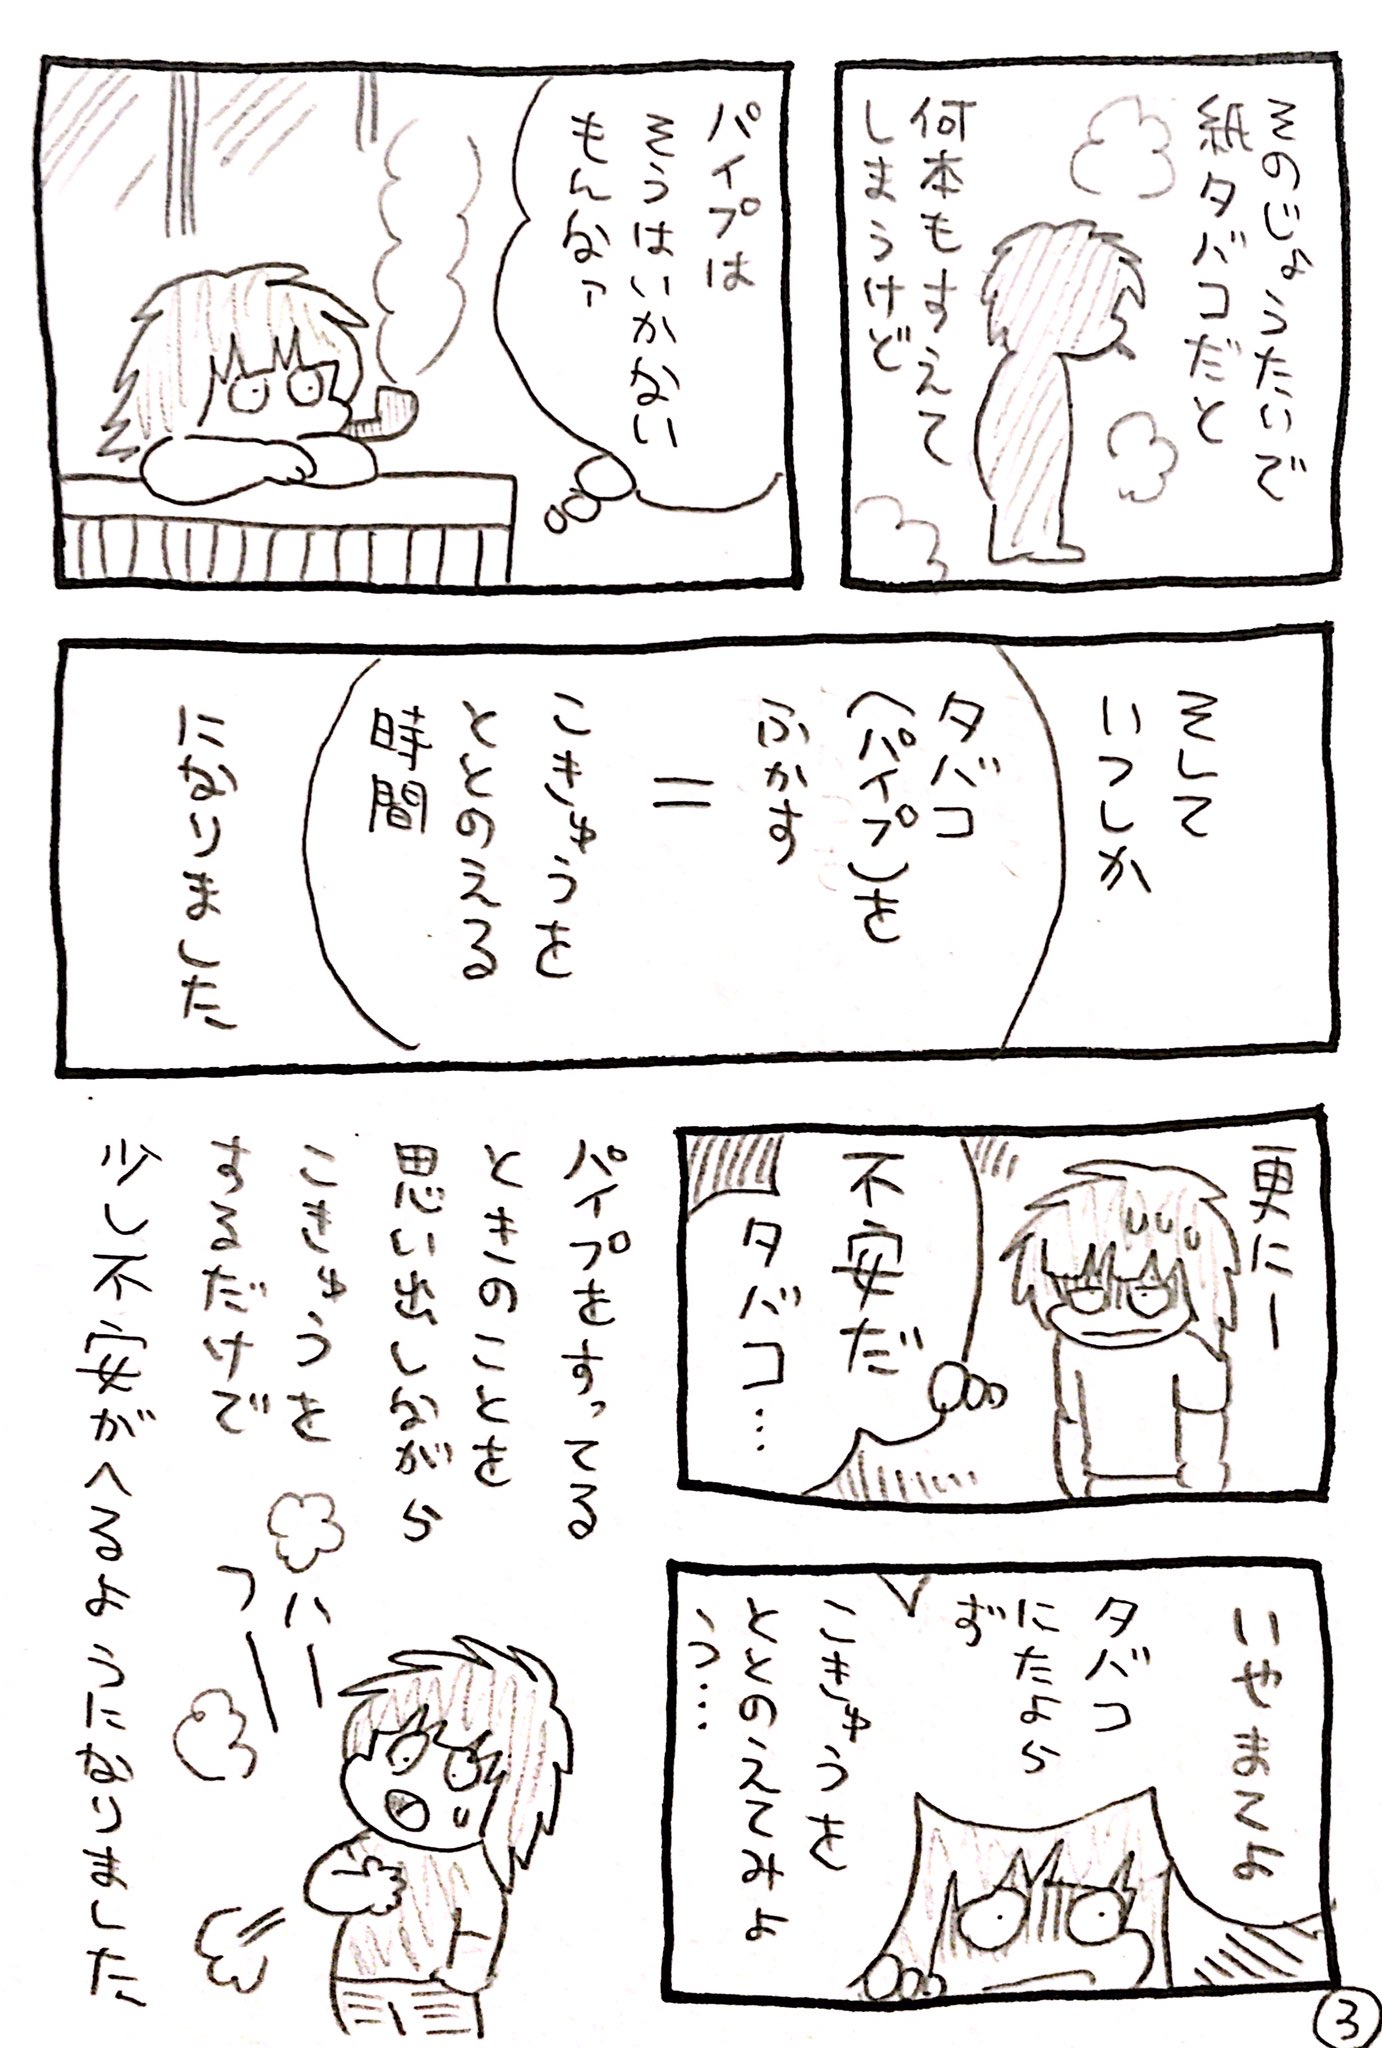 そのじょうたいで
紙タバコだと
何本もすえて
しまうけど
パイプは
そうはいかない
もんなァ
そして
いつしか
タバコ
(パイプ)を
ふかす
＝
こきゅうを
ととのえる
時間
になりました
更にー
不安だ
タバコ…
いやまてよ
タバコ
にたよら
ず
こきゅうを
ととのえてみよ
う…
パイプをすってる
ときのことを
思い出しながら
こきゅうを
するだけで
少し不安がへるようになりました
ハー
フー
3